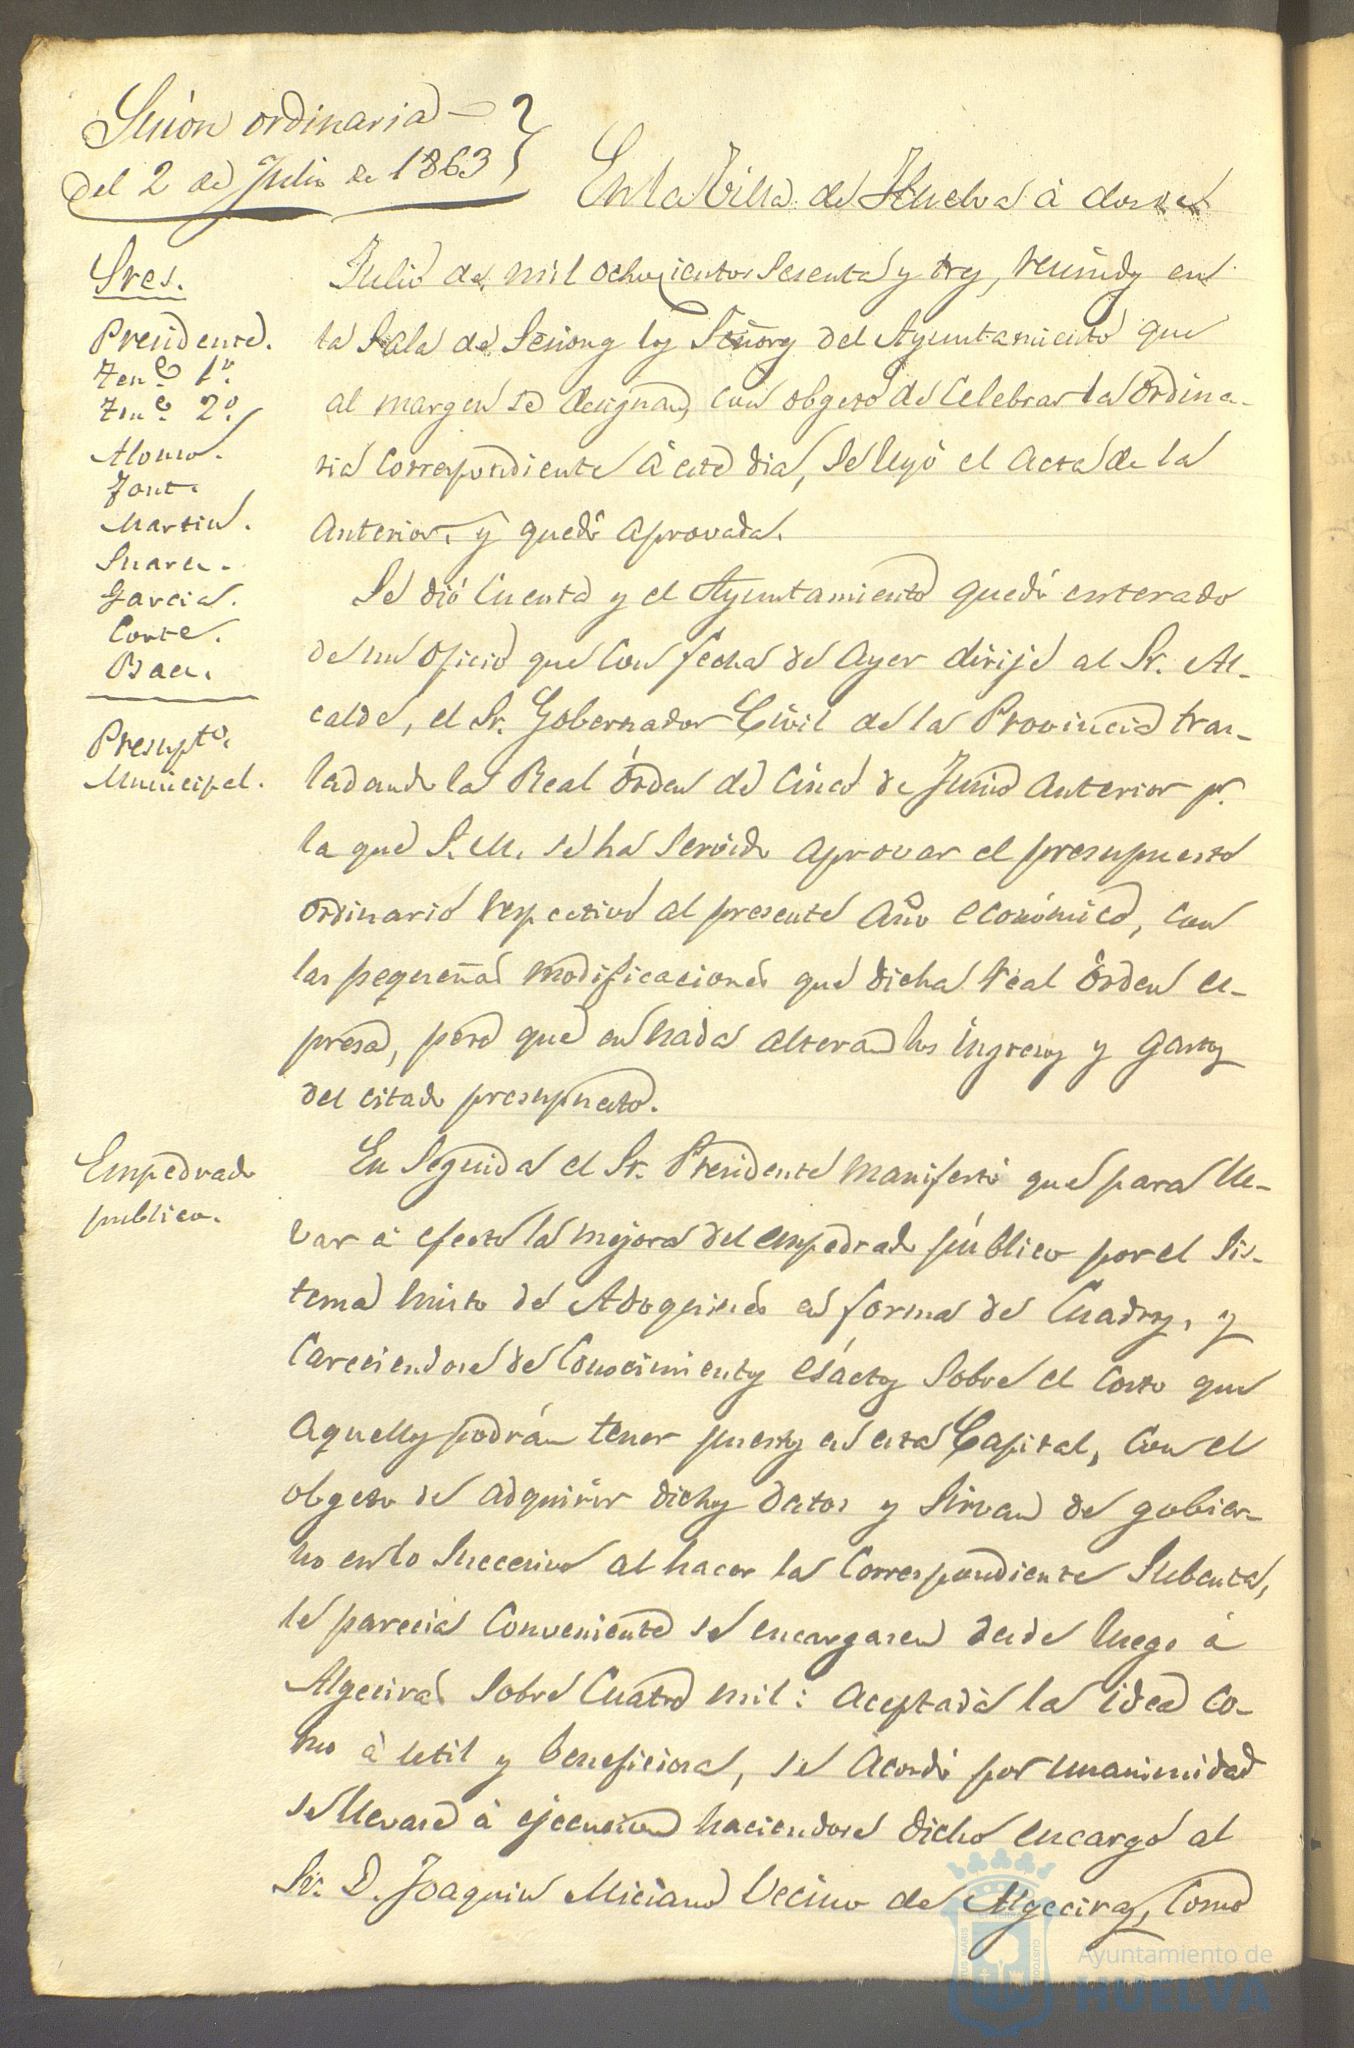 Sesion ordinaria
del 2 de Julio de 1863
En la Villa de Huelva á dos de
Sres.
Presidente.
Tene. 1º.
Tene. 2º.
Alonso.
Font.
Martin.
Suarez.
Garcia.
Corte.
Baez.
Julio de mil ochocientos sesenta y tres, reunidos en
la Sala de Sesiones los Señores del Ayuntamiento que
al margen se designan, con objeto de celebrar la ordina-
ria correspondiente á este dia, se leyó el acta de la
anterior, y quedó aprovada.
Presupto.
Municipal.
Se dió cuenta y el Ayuntamiento quedó enterado
de un oficio que con fecha de ayer dirije al Sr. Al-
calde, el Sr. Gobernador Civil de la Provincia tras-
ladando la Real órden de cinco de Junio anterior pr.
la que S. M. se ha servido aprovar el presupuesto
ordinario respectivo al presente año económico, con
las pequeñas modificaciones que dicha Real órden es-
presa, pero que en nada alteran los ingresos y gastos
del citado presupuesto.
Empedrado
publico.
En seguida el Sr. Presidente manifestó que para lle-
var á efecto la mejora del empedrado público por el sis-
tema misto de Adoquines en forma de cuadros, y
careciendose de conocimientos esáctos sobre el costo que
aquellos podrán tener puestos en esta Capital, con el
obgeto de adquirir dichos datos y sirvan de gobier-
no en lo succesivo al hacer la correspondiente Subasta,
le parecia conveniente se encargasen desde luego á
Algeciras sobre cuatro mil: aceptada la idea co-
mo á util y beneficiosa, se acordó por unanimidad
se llevase á ejecucion haciendose dicho encargo al
Sr. D. Joaquin Miciano vecino de Algeciras, como
Ayuntamiento de
HUELVA